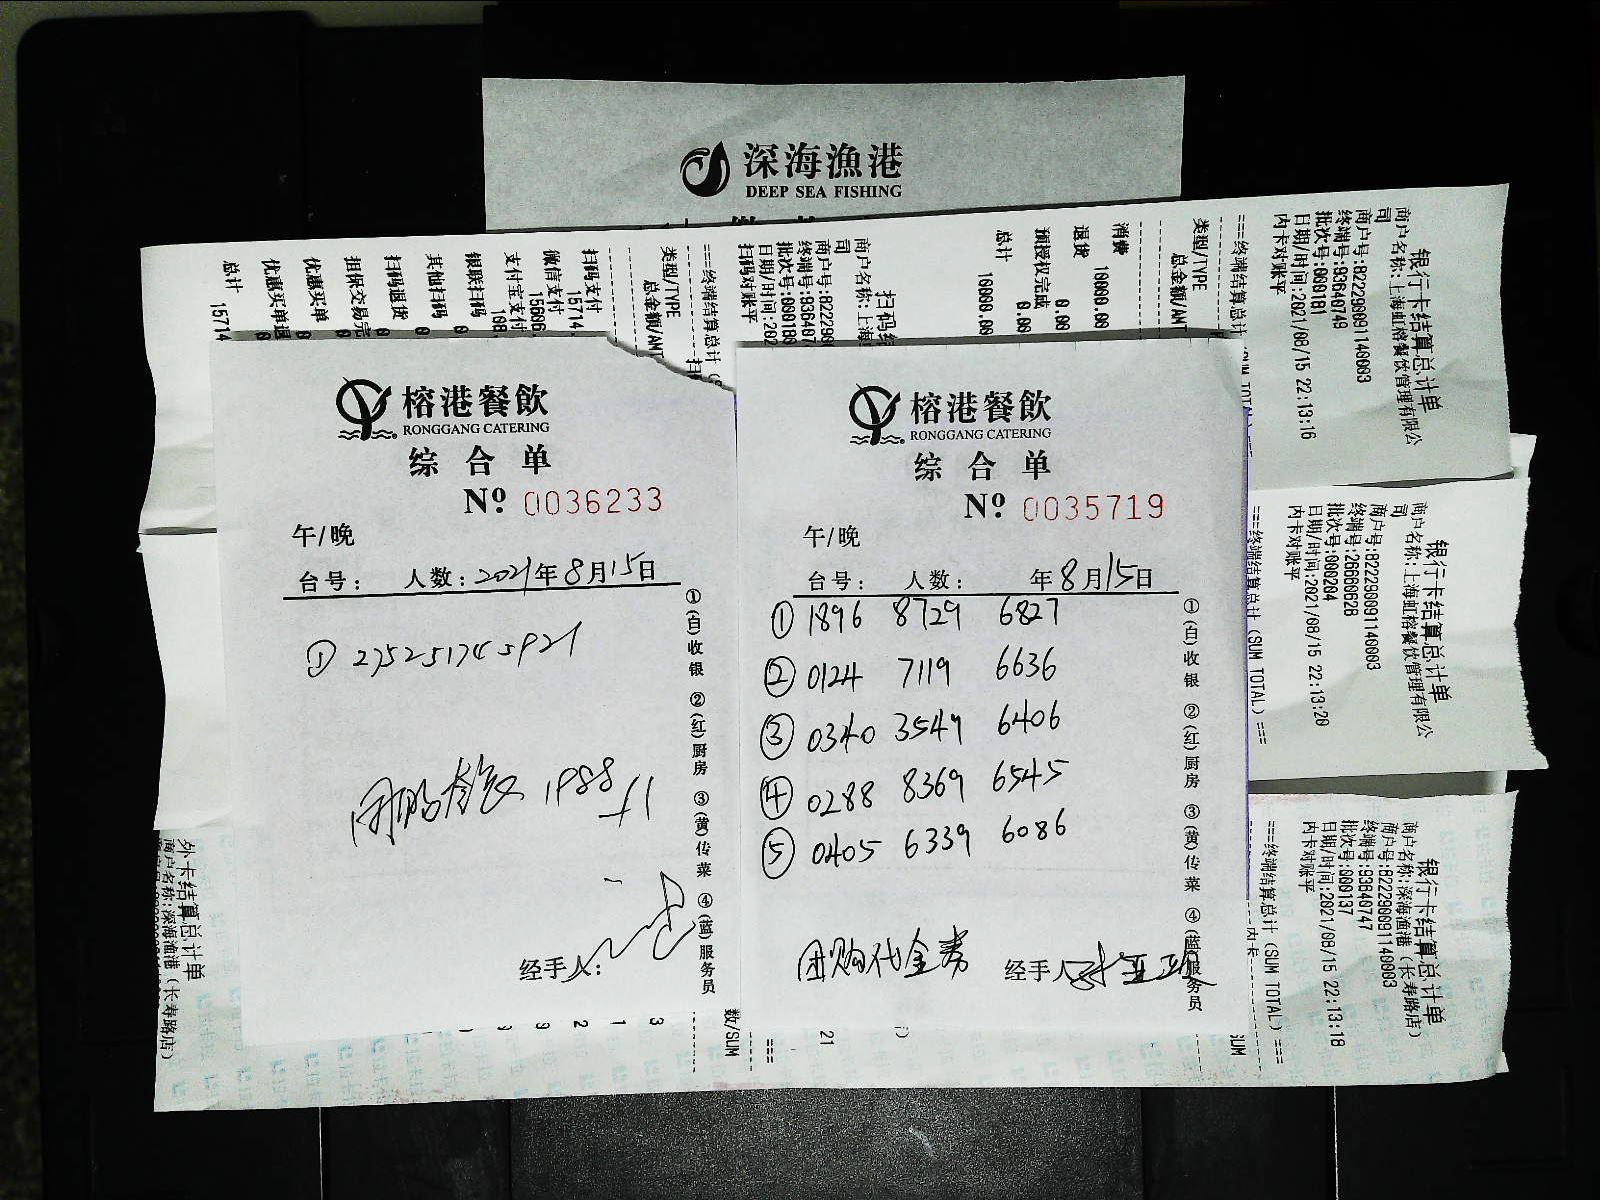 深海漁港
DEEP SEA FISHING
榕港餐飲
RONGGANG CATERING
综合单
Nº 0036233
午/晚
台号: 人数: 2021年8月15日
① 275251745921
团购套餐 1988
经手人:
①(白)收银 ②(红)厨房 ③(黄)传菜 ④(蓝)服务员
榕港餐飲
RONGGANG CATERING
综合单
Nº 0035719
午/晚
台号: 人数: 年8月15日
① 1896 8729 6827
② 0124 7119 6636
③ 0340 3549 6406
④ 0288 8369 6545
⑤ 0405 6339 6086
团购代金券 经手人
①(白)收银 ②(红)厨房 ③(黄)传菜 ④(蓝)服务员
银行卡结算总计单
商户名称:上海虹榕餐饮管理有限公
司
商户号:822290091140003
终端号:93640749
批次号:000181
日期/时间:2021/08/15 22:13:16
内卡对账平
===终端结算总计(SUM TOTAL)===
类型/TYPE
总金额/AMT
消费
10000.00
退货
0.00
预授权完成
0.00
总计
10000.00
扫码结
商户名称:上海
司
商户号:822290
终端号:936407
批次号:000180
日期/时间:202
扫码对账平
===终端结算总计(S
类型/TYPE
总金额/AMT
扫码支付
15714.
微信支付
15606.
支付宝支付
108.
银联扫码
0
其他扫码
0
扫码退货
0
担保交易完
0
优惠买单
0
优惠买单退
0
总计
15714
银行卡结算总计单
商户名称:上海虹榕餐饮管理有限公
司
商户号:822290091140003
终端号:26660628
批次号:000204
日期/时间:2021/08/15 22:13:20
内卡对账平
===终端结算总计(SUM TOTAL)===
银行卡结算总计单
商户名称:深海渔港(长寿路店)
商户号:822290091140003
终端号:93640747
批次号:000137
日期/时间:2021/08/15 22:13:18
内卡对账平
===终端结算总计(SUM TOTAL)===
内卡
外卡结算总计单
商户名称:深海渔港(长寿路店)
数/SUM
3
1
2
0
0
21